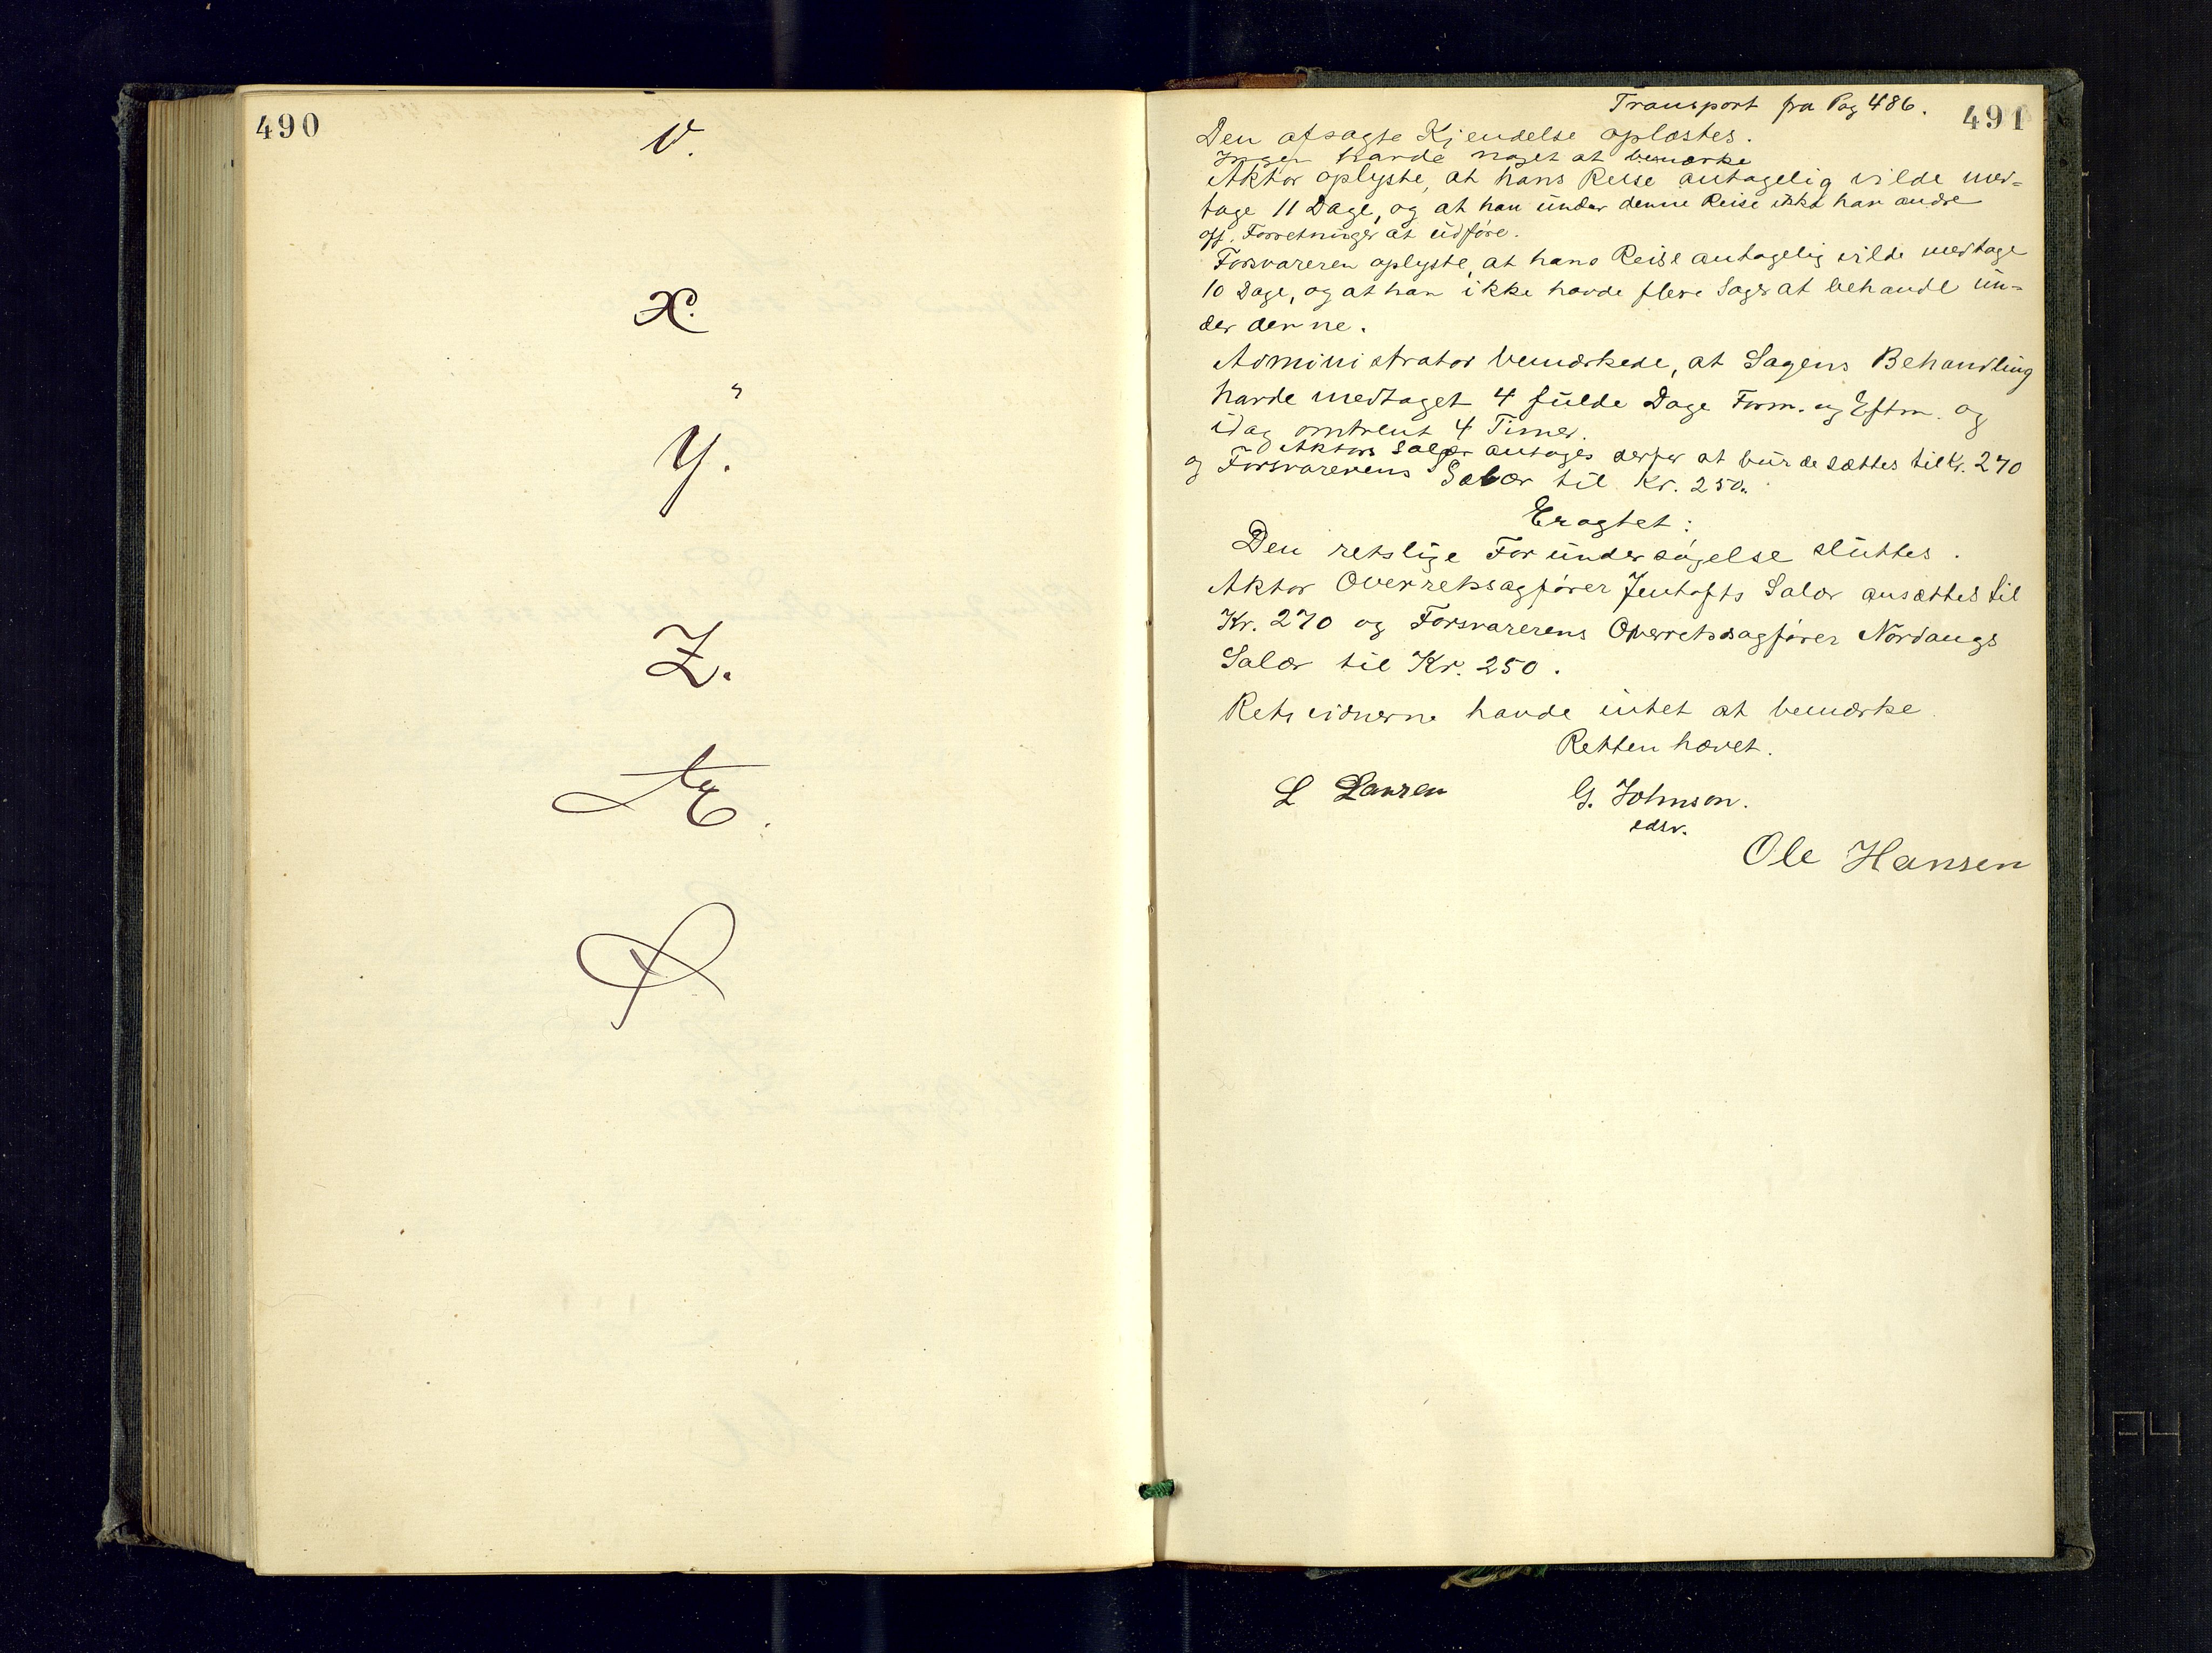 490
V.
X.
Y.
Z.
Æ.
Ø
Transport fra Pag 486.
491
Den afsagte Kjendelse oplæstes.
Ingen havde noget at bemærke
Aktor oplyste, at hans Reise antagelig vilde med-
tage 11 Dage, og at han under denne Reise ikke har andre
off. Forretninger at udføre.
Forsvareren oplyste, at hans Reise antagelig vilde medtage
10 Dage, og at han ikke havde flere Sager at behandle un-
der denne.
Administrator bemærkede, at Sagens Behandling
havde medtaget 4 fulde Dage Form. og Eftm. og
idag omtrent 4 Timer.
Aktors Salær antages derfor at burde sættes til Kr. 270
og Forsvarerens Salær til Kr. 250.
Eragtet:
Den retslige Forundersøgelse sluttes.
Aktor Overretssagfører Jentofts Salær ansættes til
Kr. 270 og Forsvarerens Overretssagfører Nordangs
Salær til Kr. 250.
Retsvidnerne havde intet at bemærke
Retten hævet.
L Larsen
G. Johnson.
edsv.
Ole Hansen
A4